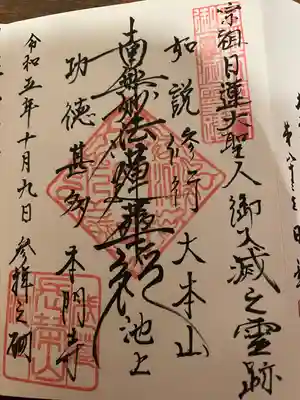 宗祖日蓮大聖人御入滅之霊跡
如説修行 大本山
南無妙法蓮華経 池上
功徳甚多 本門寺
令和五年十月九日 参拝之砌